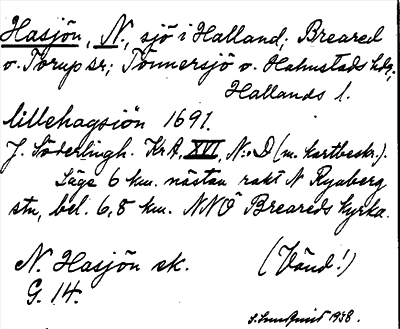 Hasjön, N., sjö i Halland; Breared
o. Torup sr; Tönnersjö o. Halmstads hdr,
Hallands l.
lillehagsiön 1691.
J. Söderlingh. KrA. XVI, N:o D (m. kartbeskr.).
Läge 6 km. nästan rakt N Ryaberg
stn, bel. 6,8 km. NNÖ Breareds kyrka.
N. Hasjön sk. (Vänd!)
G. 14.
1938.